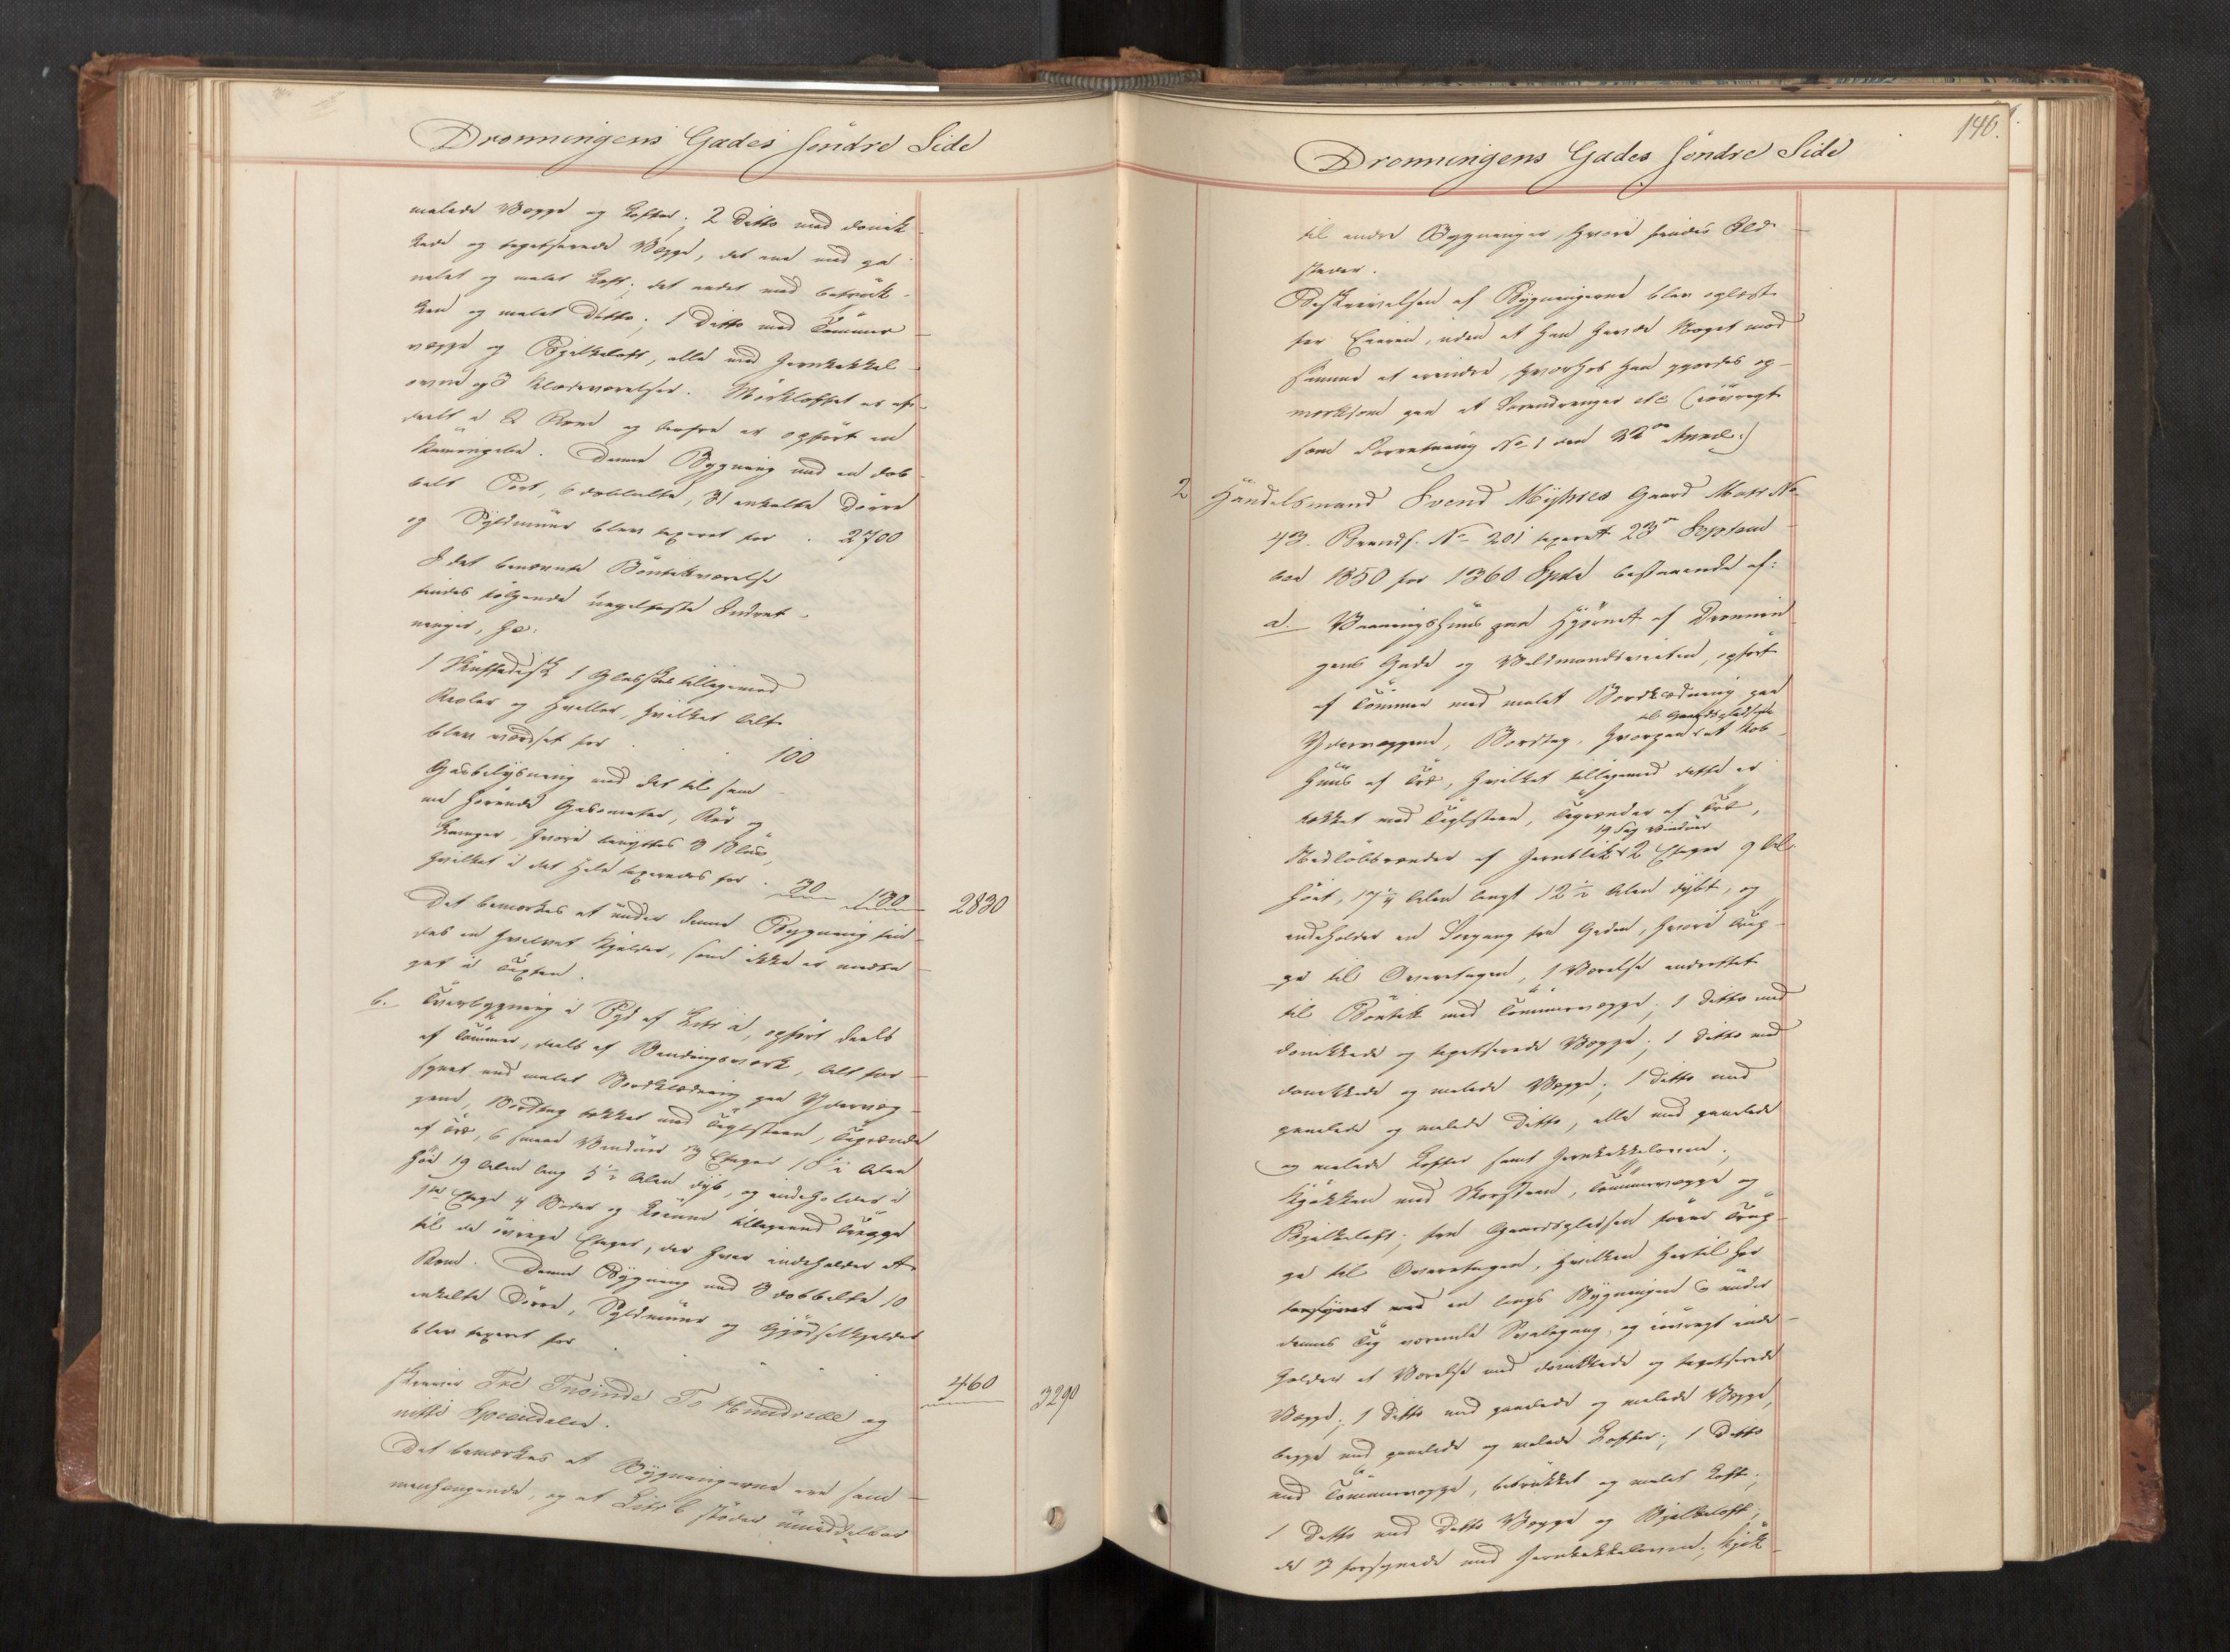 Dronningens Gades søndre Side
malede Vægge og Lofter; 2 Ditto med donik-
kede og tapetserede Vægge, det ene med pa-
nelet og malet Loft; det andet med betræk-
ket og malet Ditto; 1 Ditto med Tømmer-
vægge og Bjelkeloft, alle med Jernkakkel-
ovne og 3 Klædeværelser. Mørkloftet er af-
deelt i 2 Rum og derfra er opført en
Denne Bygning med en dob-
belt Port, 6 dobbelte, 31 enkelte Dørre
og Syldmuur blev taxeret for . 2700
I det benævnte Boutikværelse
findes følgende nagelfaste Indret-
ninger, sc:
1 Skuffedisk 1 Glasskab tilligemed
Reoler og Hylder, hvilket Alt
blev værdsat for . . . 100
Gasbelysning med det til sam-
me hørende Gasometer, Rør og
Lamper, hvori benyttes 3 Blus,
hvilket i det Hele taxeredes for . 30 130 2830
Det bemærkes at under denne Bygning fin-
des en hvælvet Kjelder, som ikke er medta-
get i Taxten.
b. Tverbygning i Syd af Litr a, opført deels
af Tømmer, deels af Bindingsværk, Alt for-
synet med malet Bordklædning paa Ydervæg-
gene, Bordtag tækket med Taglsteen, Tagrender
af Træ, 6 smaae Vinduer 3 Etager 10½ Alen
høi 19 Alen lang 5½ Alen dyb, og indeholder i
1ste Etage 4 Boder og tilligemed Trappe
til de øvrige Etager, der hver indeholder et
Rum. Denne Bygning med 3 dobbelte 10
enkelte Dørre, Syldmuur og Gjødselkjelder
blev taxeret for . . . 460 3290
skriver Tre Tusinde To Hundrede og
nitti Speciedaler.
Det bemærkes at Bygningerne ere sam-
menhængende, og at Litr b støder umiddelbar
140.
Dronningens Gades søndre Side
til andre Bygninger, hvori findes Ild-
steder.
Beskrivelsen af Bygningerne blev oplæst
for Eieren, uden at han havde Noget mod
samme at erindre, hvorhos han gjordes op-
mærksom paa at Forandringer etc (iøvrigt
som Forretning No 1 den 22de April.)
2 Handelsmand Svend Myhres Gaard Matr No
43. Brandf. No 201 taxeret 23de Septem-
ber 1850 for 1360 Spd bestaaende af:
a. Vaaningshuus paa Hjørnet af Dronnin-
gens Gade og Voldmandsveiten, opført
af Tømmer med malet Bordklædning paa
til Gaardspladsen
Ydervæggene, Bordtag, hvorpaa et Kob-
huus af Træ, hvilket tilligemed dette er
tækket med Taglsteen, Tagrender af Træ,
19 Fag Vinduer
Nedløbsrender af Jernblik 2 Etager 9 Alen
høit, 17¼ Alen langt 12½ Alen dybt, og
indeholder en Forgang fra Gaden, hvori Trap-
pe til Overetagen, 1 Værelse indrettet
til Boutik med Tømmervægge; 1 Ditto med
donikkede og tapetserede Vægge; 1 Ditto med
donikkede og malede Vægge; 1 Ditto med
panelede og malede Ditto, alle med panelede
og malede Lofter samt Jernkakkelovne;
Kjøkken med Skorsteen, Tømmervægge og
Bjelkeloft; fra Gaardspladsen fører Trap-
pe til Overetagen, hvilken hertil har
forsynet med en langs Bygningen under
dennes Tag værende Svalegang, og iøvrigt inde-
holder et Værelse med donikkede og tapetserede
Vægge; 1 Ditto med panelede og malede Vægge,
begge med panelede og malede Lofter; 1 Ditto
med Tømmervægge, betrukket og malet Loft;
1 Ditto med Ditto Vægge og Bjelkeloft;
de 3 forsynede med Jernkakkelovne; Kjøk-